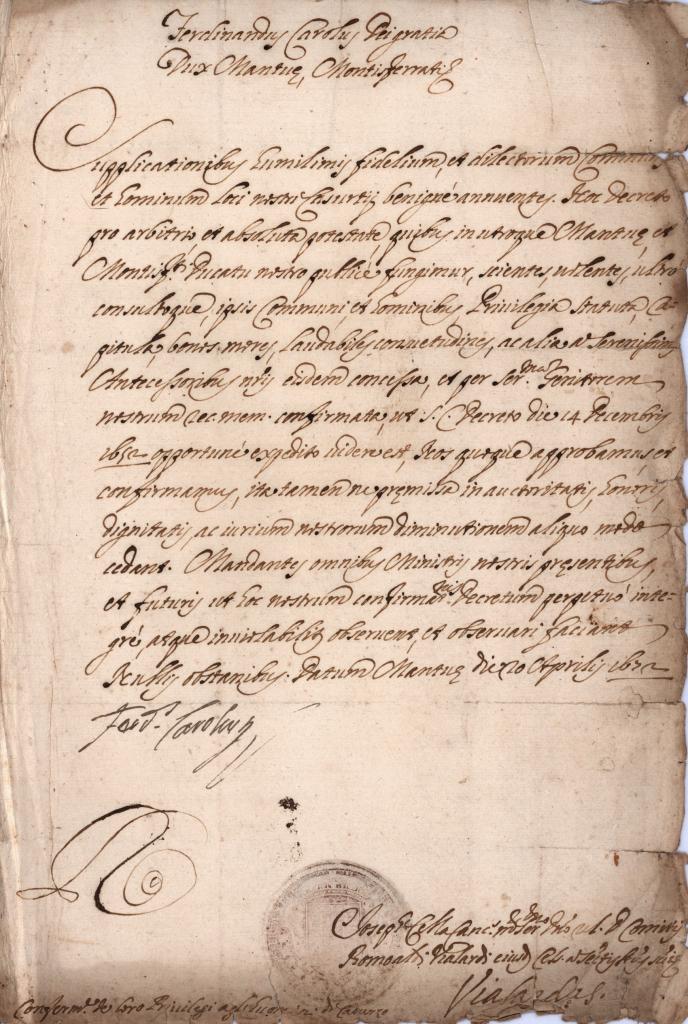 Ferdinandus Carolus Dei gratia
Dux Mantuę, Montisferrati
Supplicationibus humilimis fidelium, et dilectorum Communis
et hominum loci nostri benignè annuentes. Hoc Decreto
pro arbitrio et absoluta potestate quibus in utroque Mantuę et
Montisfti. Ducatu nostro publicè fungimur, scientes, volentes, ultrò
consultoque, ipsis Communi, et hominibus Privilegia statuta, Ca-
pitula, bonos mores, laudabiles consuetudines, ac alia a Serenissimis
Antecessoribus nris eisdem concessa, et per Ser.mum Genitorem
nostrum rec. mem. confirmata, ut S. C. Decreto die 14 Decembris
opportunè expedito videre est, Nos quoque approbamus et
confirmamus, ita tamen ne pręmissa in auctoritatis, honoris,
dignitatis, ac iurium nostrorum diminutionem aliquo modo
cedant. Mandantes omnibus Ministris nostris pręsentibus,
et futuris ut hoc nostrum confirmationis Decretum perpetuò inte-
grè, atque inviolabiliter observent, et observari faciant
Nullis obstantibus. Datum Mantuę die Aprilis
Ferd. Carolus
Joseph Cella Canc.
Romoaldi Vialardi eiusd.
Vialardus.
Conferm. de loro Privilegi